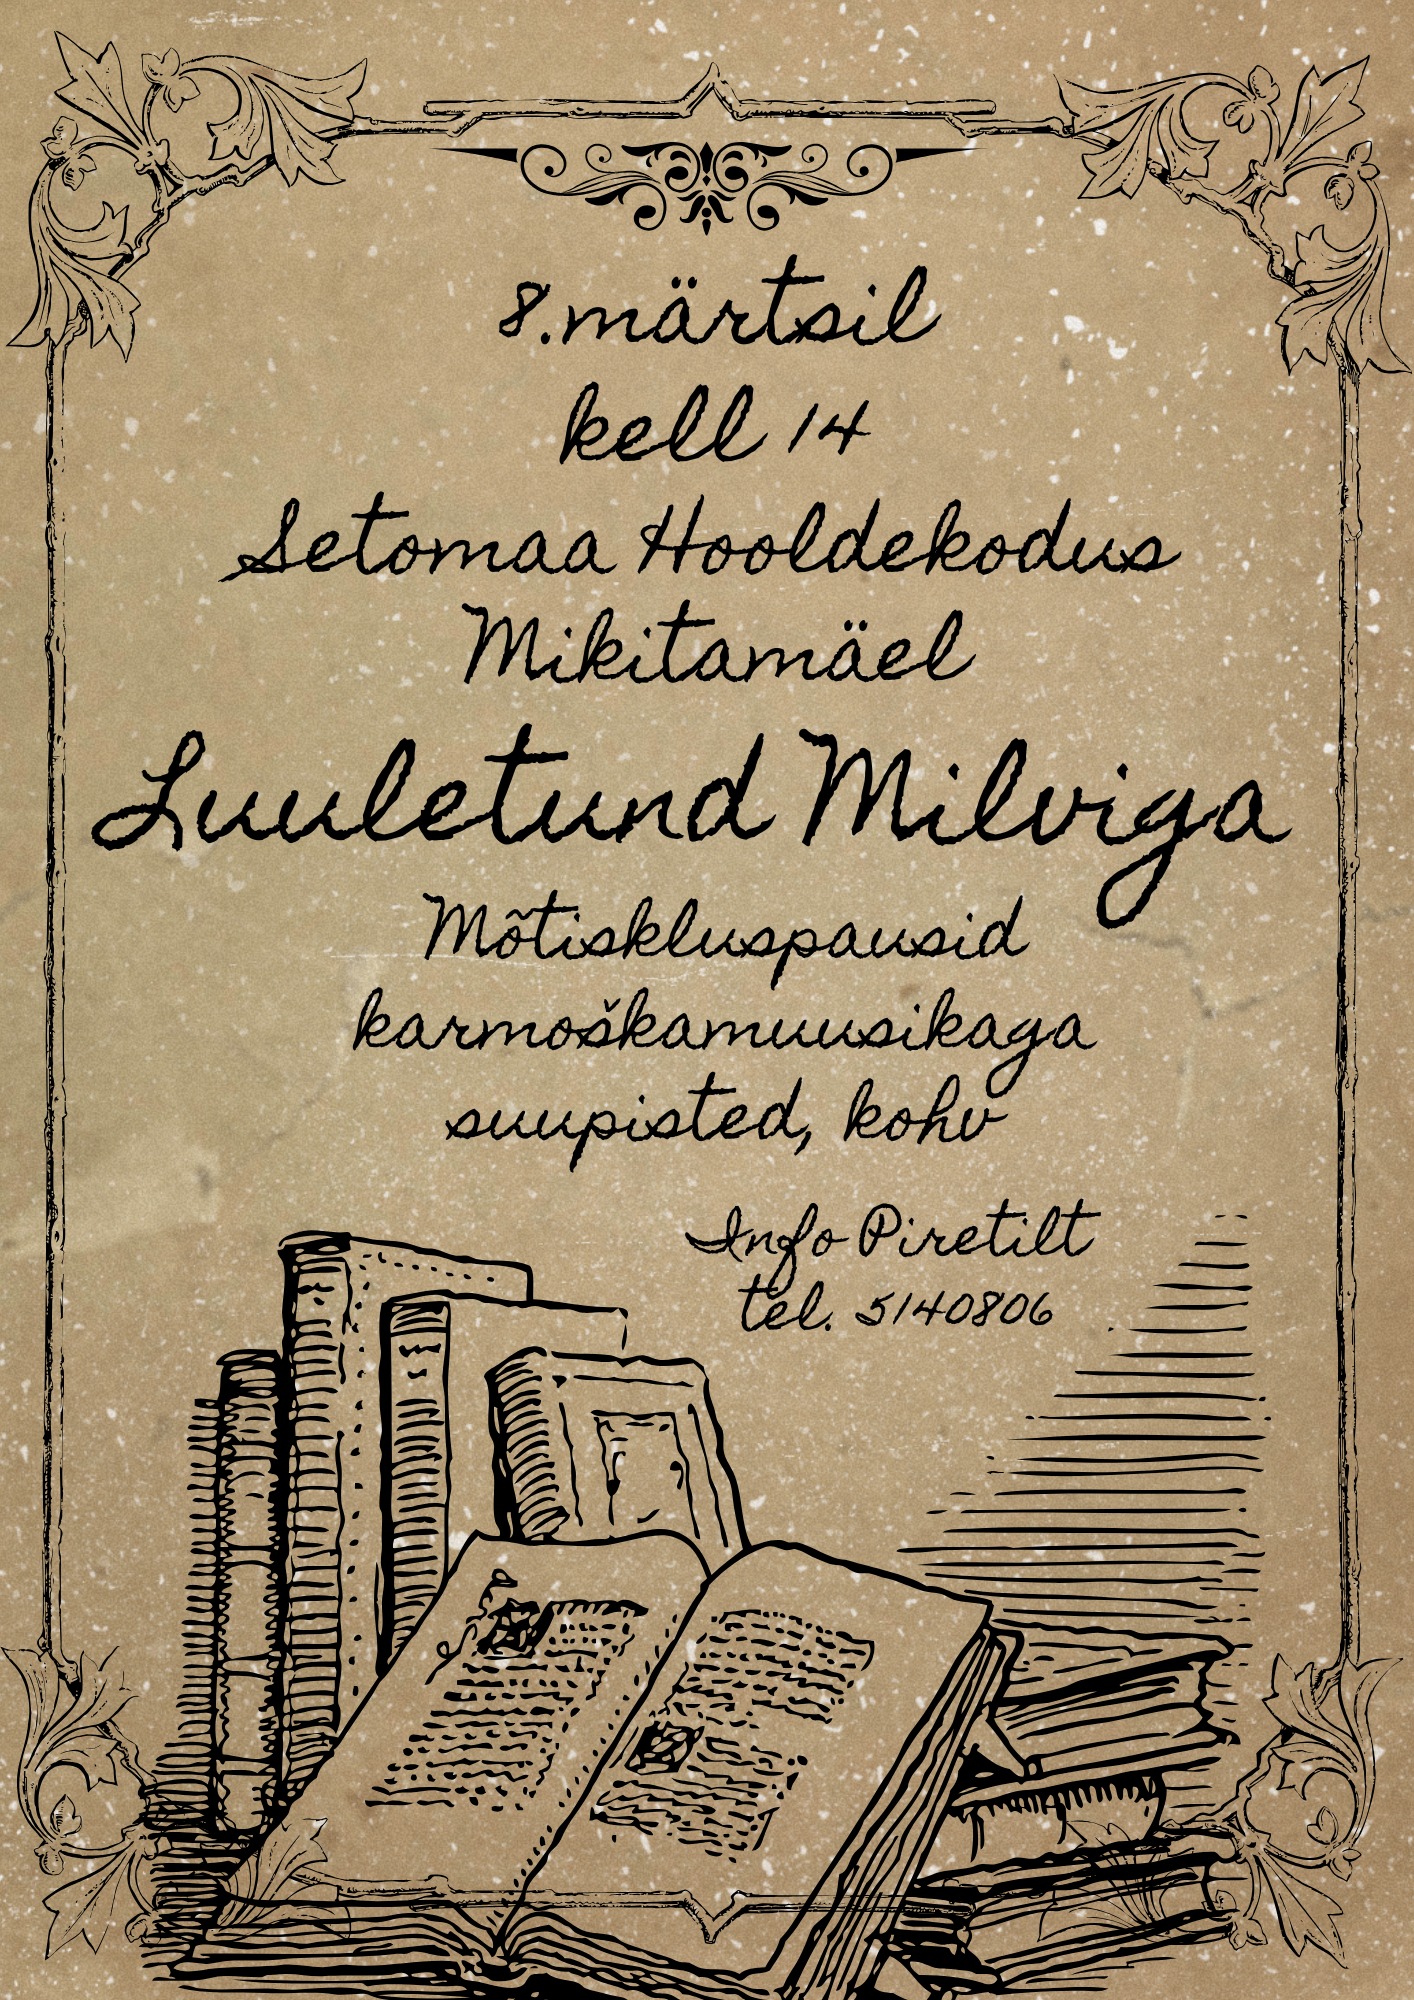 8.märtsil
kell 14
Setomaa Hooldekodus
Mikitamäel
Luuletund Milviga
Mõtiskluspausid
karmoškamuusikaga
suupisted, kohv
Info Piretilt
tel. 5140806